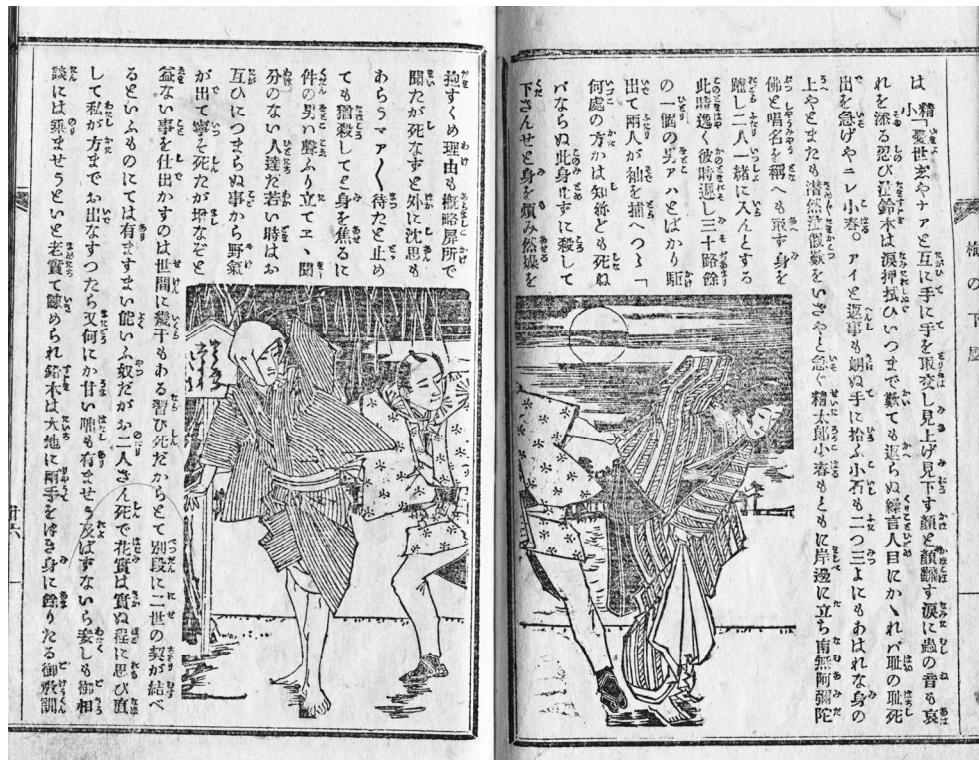 は精小「憂世玄やナアと互に手に手を取交し見上げ見下す顔と顔飜す涙に蟲の音も哀
れを添る忍び泣鈴木は涙押拭ひいつまで歎ても返らぬ繰言人目にかゝれバ耻の耻死
出を急げやニレ小春。アイと返事も朗ぬ手に拾ふ小石も二つ三よにもあはれな身の
上やとまたも潜然泣歔欷をいざやと急ぐ精太郎小春もともに岸邊に立ち南無阿彌陀
佛と唱名を稱へも敢ず身を
躍し二人一緒に入んとする
此時遲く彼時遲し三十路餘
の一個の男アハとばかり駆
出て兩人が袖を捕へつゝ「
何處の方かは知ねども死ね
バならぬ此身止ずに殺して
下さんせと身を煩み然燥を
拘すくめ理由も概略扉所で
聞たが死なずと外に沈思も
あらうマア〱待たと止め
ても猶殺してと身を焦るに
件の男ハ聲ふり立てエヽ聞
分のない人達だ若い時はお
互ひにつまらぬ事から野氣
が出て寧そ死たが増なぞと
益ない事を仕出かすのは世間に幾干もある習ひ死だからとて別段に二世の契が結べ
るといふものにては有ますまい能いふ奴だがお二人さん死で花實は實ぬ程に思ひ直
して私が方までお出なすつたら又何にか甘い咄も有ませう及ばずないら妾しも御相
談には乗ませうといと老實て諫められ鈴木は大地に兩手をつき身に餘りたる御教訓